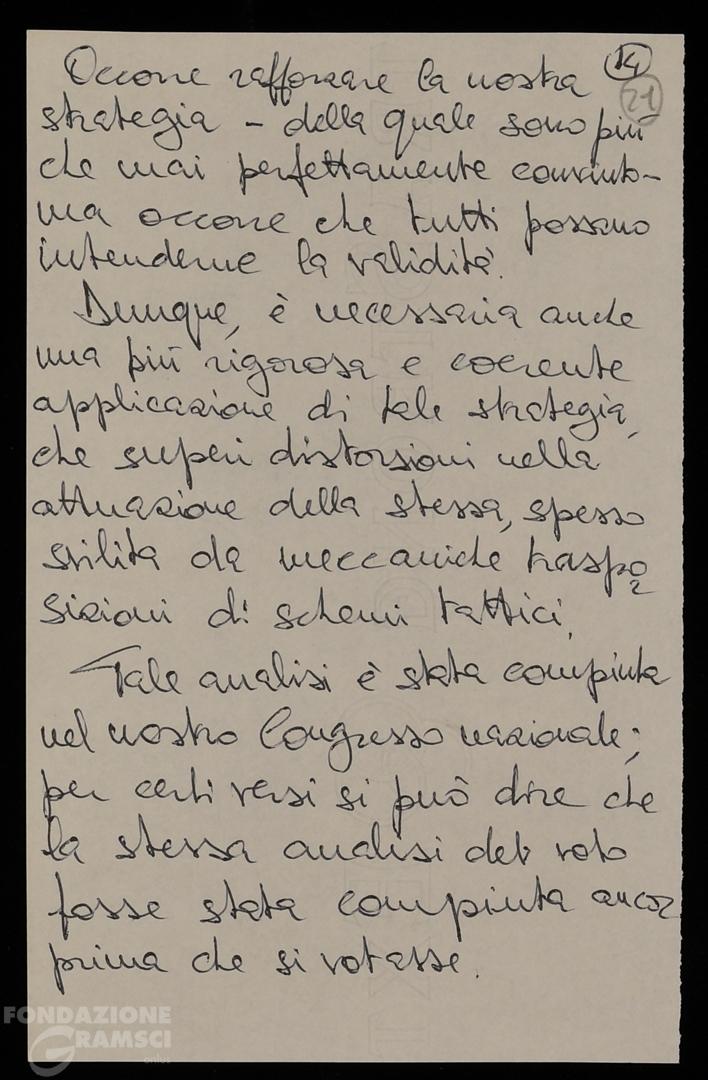 Occorre rafforzare la nostra 14
21
strategia - della quale sono più
che mai perfettamente convinto -
ma occorre che tutti possano
intenderne la validità.
Dunque, è necessaria anche
una più rigorosa e coerente
applicazione di tale strategia,
che superi distorsioni nella
attuazione della stessa, spesso
svilita da meccaniche traspo
sizioni di schemi tattici.
Tale analisi è stata compiuta
nel nostro Congresso nazionale;
per certi versi si può dire che
la stessa analisi del voto
fosse stata compiuta ancor
prima che si votasse.
FONDAZIONE
GRAMSCI
onlus